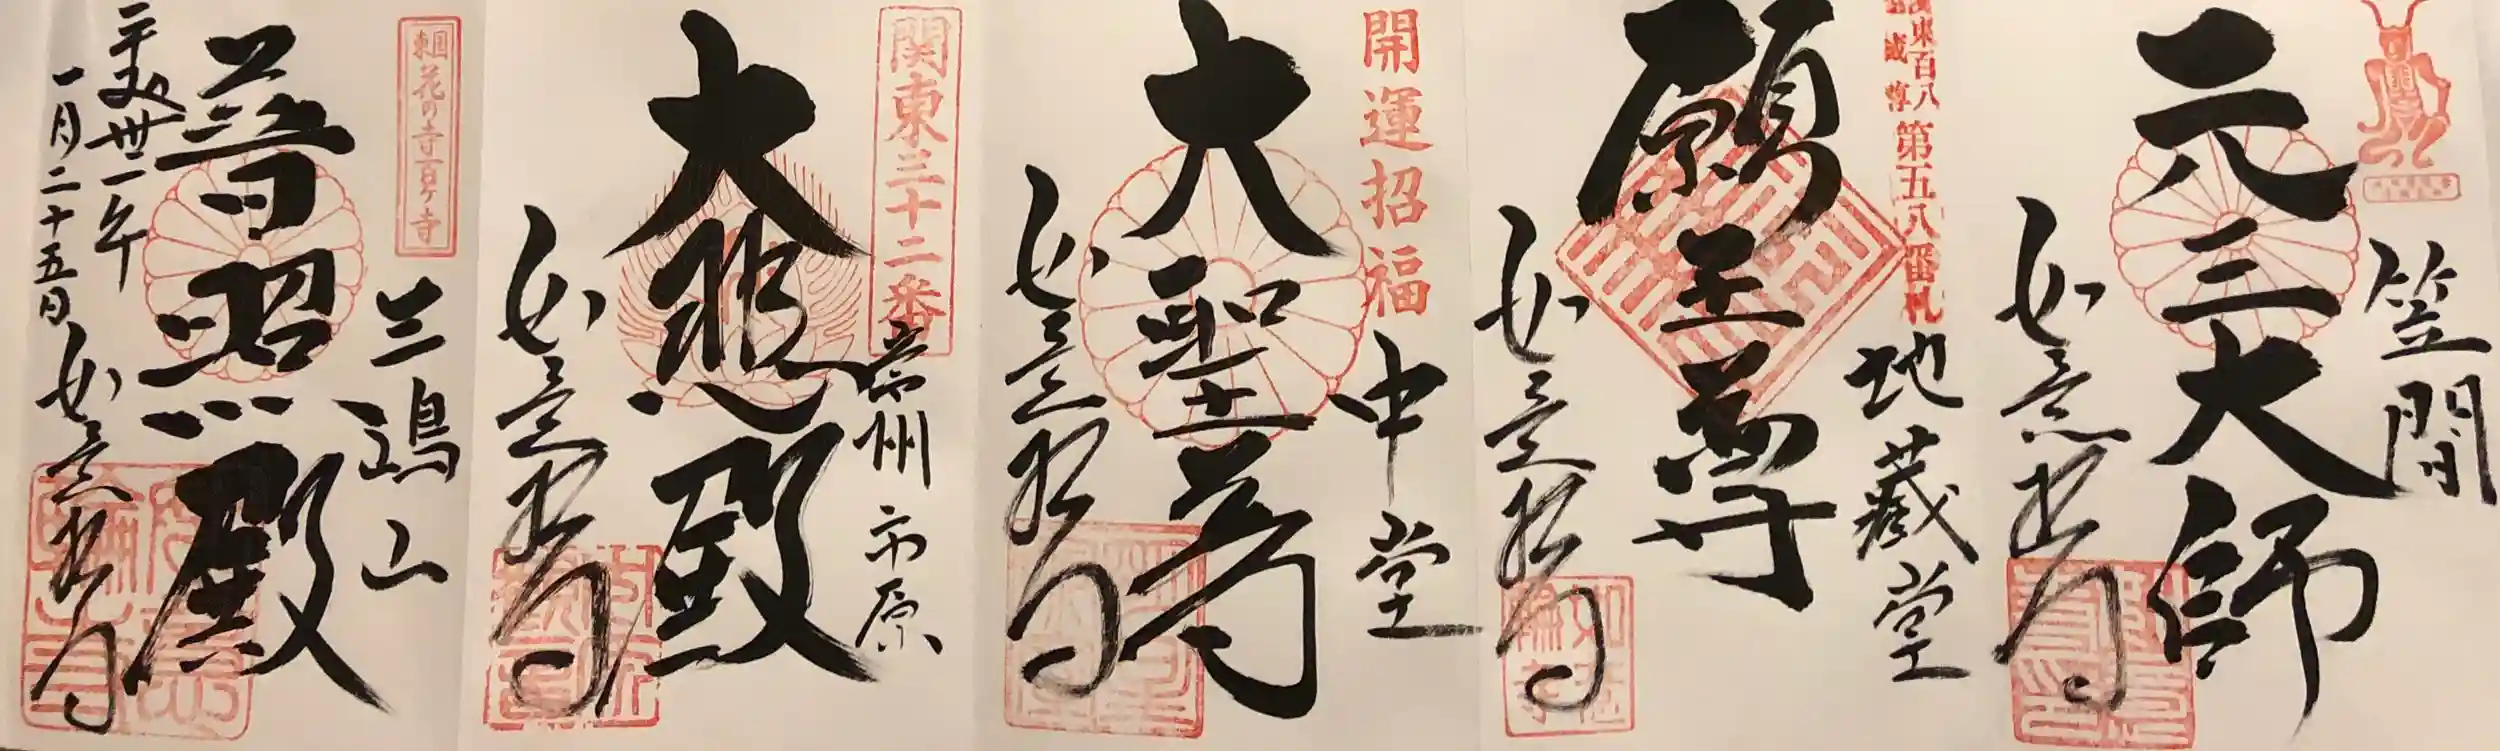 笠間
元三大師
如意輪寺
第五八番札
地蔵堂
願王尊
如意輪寺
開運招福
中堂
大聖
如意輪寺
関東三十二番
常州市原
大悲殿
如意輪寺
東国花の寺百ヶ寺
三嶋山
普照殿
平成卅一年
一月二十五日
如意輪寺